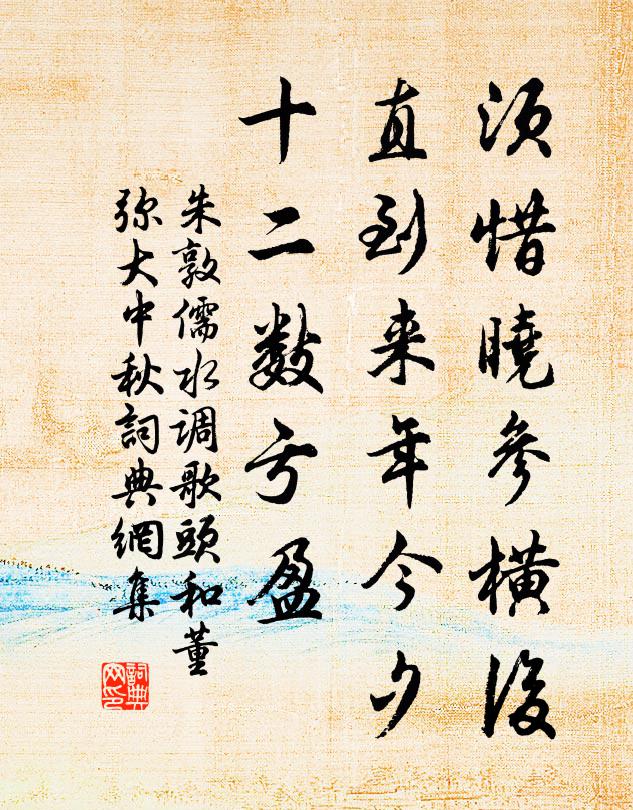 须惜曉參横後
直到来年今夕
十二数亏盈
朱敦儒水调歌頭和董
弥大中秋詞典網集
詞典
网印